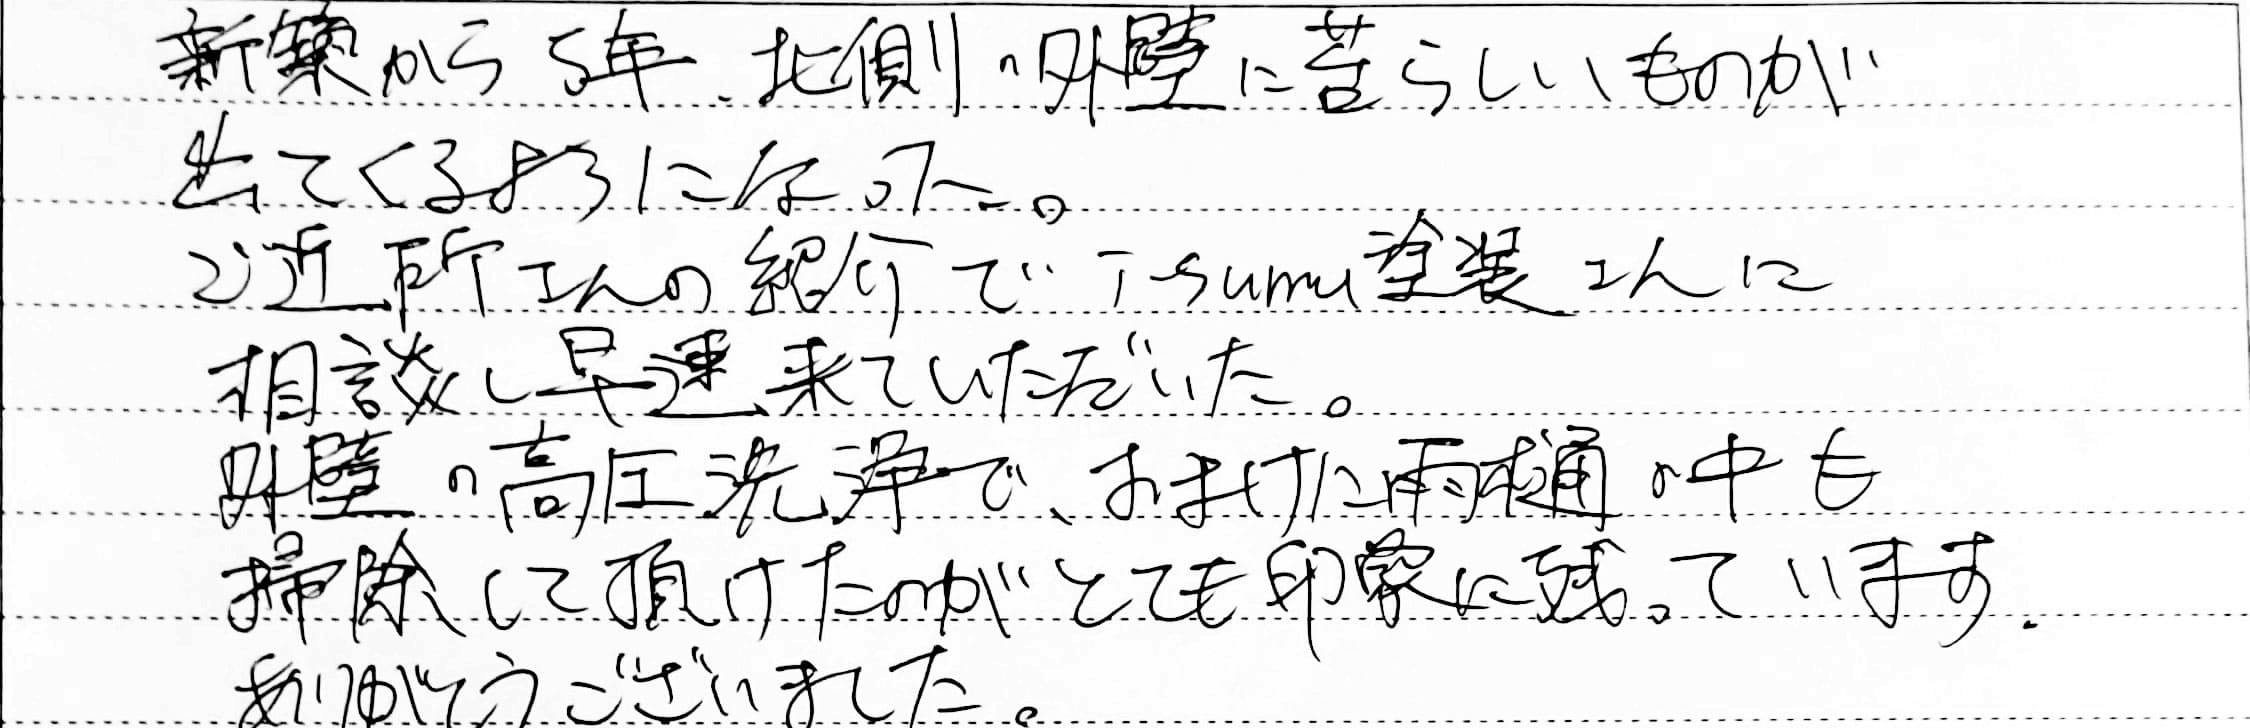 新築から5年、北側の外壁に苔らしいものが
出てくるようになった。
ご近所さんの紹介でTsumu塗装さんに
相談し早速来ていただいた。
外壁の高圧洗浄で、おまけに雨樋の中も
掃除して頂けたのがとても印象に残っています.
ありがとうございました。